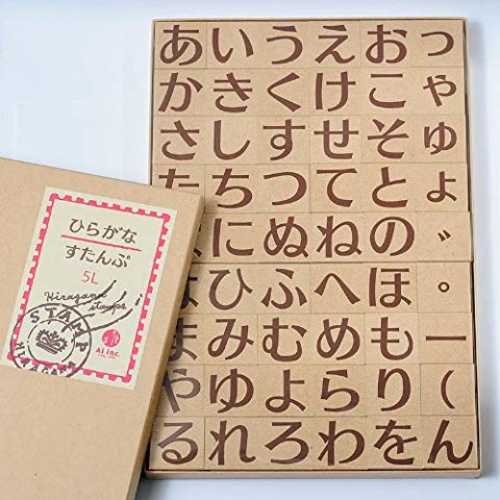 あいうえおっ
かきくけこゃ
さしすせそゅ
たちつてとょ
なにぬねの゛
はひふへほ。
まみむめもー
やゆよらり(
るれろわをん
ひらがな
すたんぷ
5L
Hiragana
stamps
STAMP
HIRAGANA